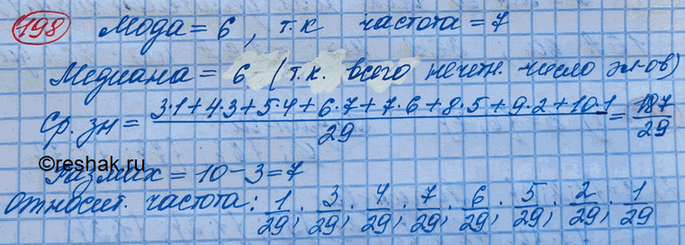 198 Мода = 6, т.к частота = 7
Медиана = 6 (т.к. всего нечетн. число эл-ов)
Ср. зн = (3·1+4·3+5·4+6·7+7·6+8·5+9·2+10·1)/29 = 187/29
©reshak.ru
Размах = 10-3=7
Относит. частота: 1/29; 3/29; 4/29; 7/29; 6/29; 5/29; 2/29; 1/29